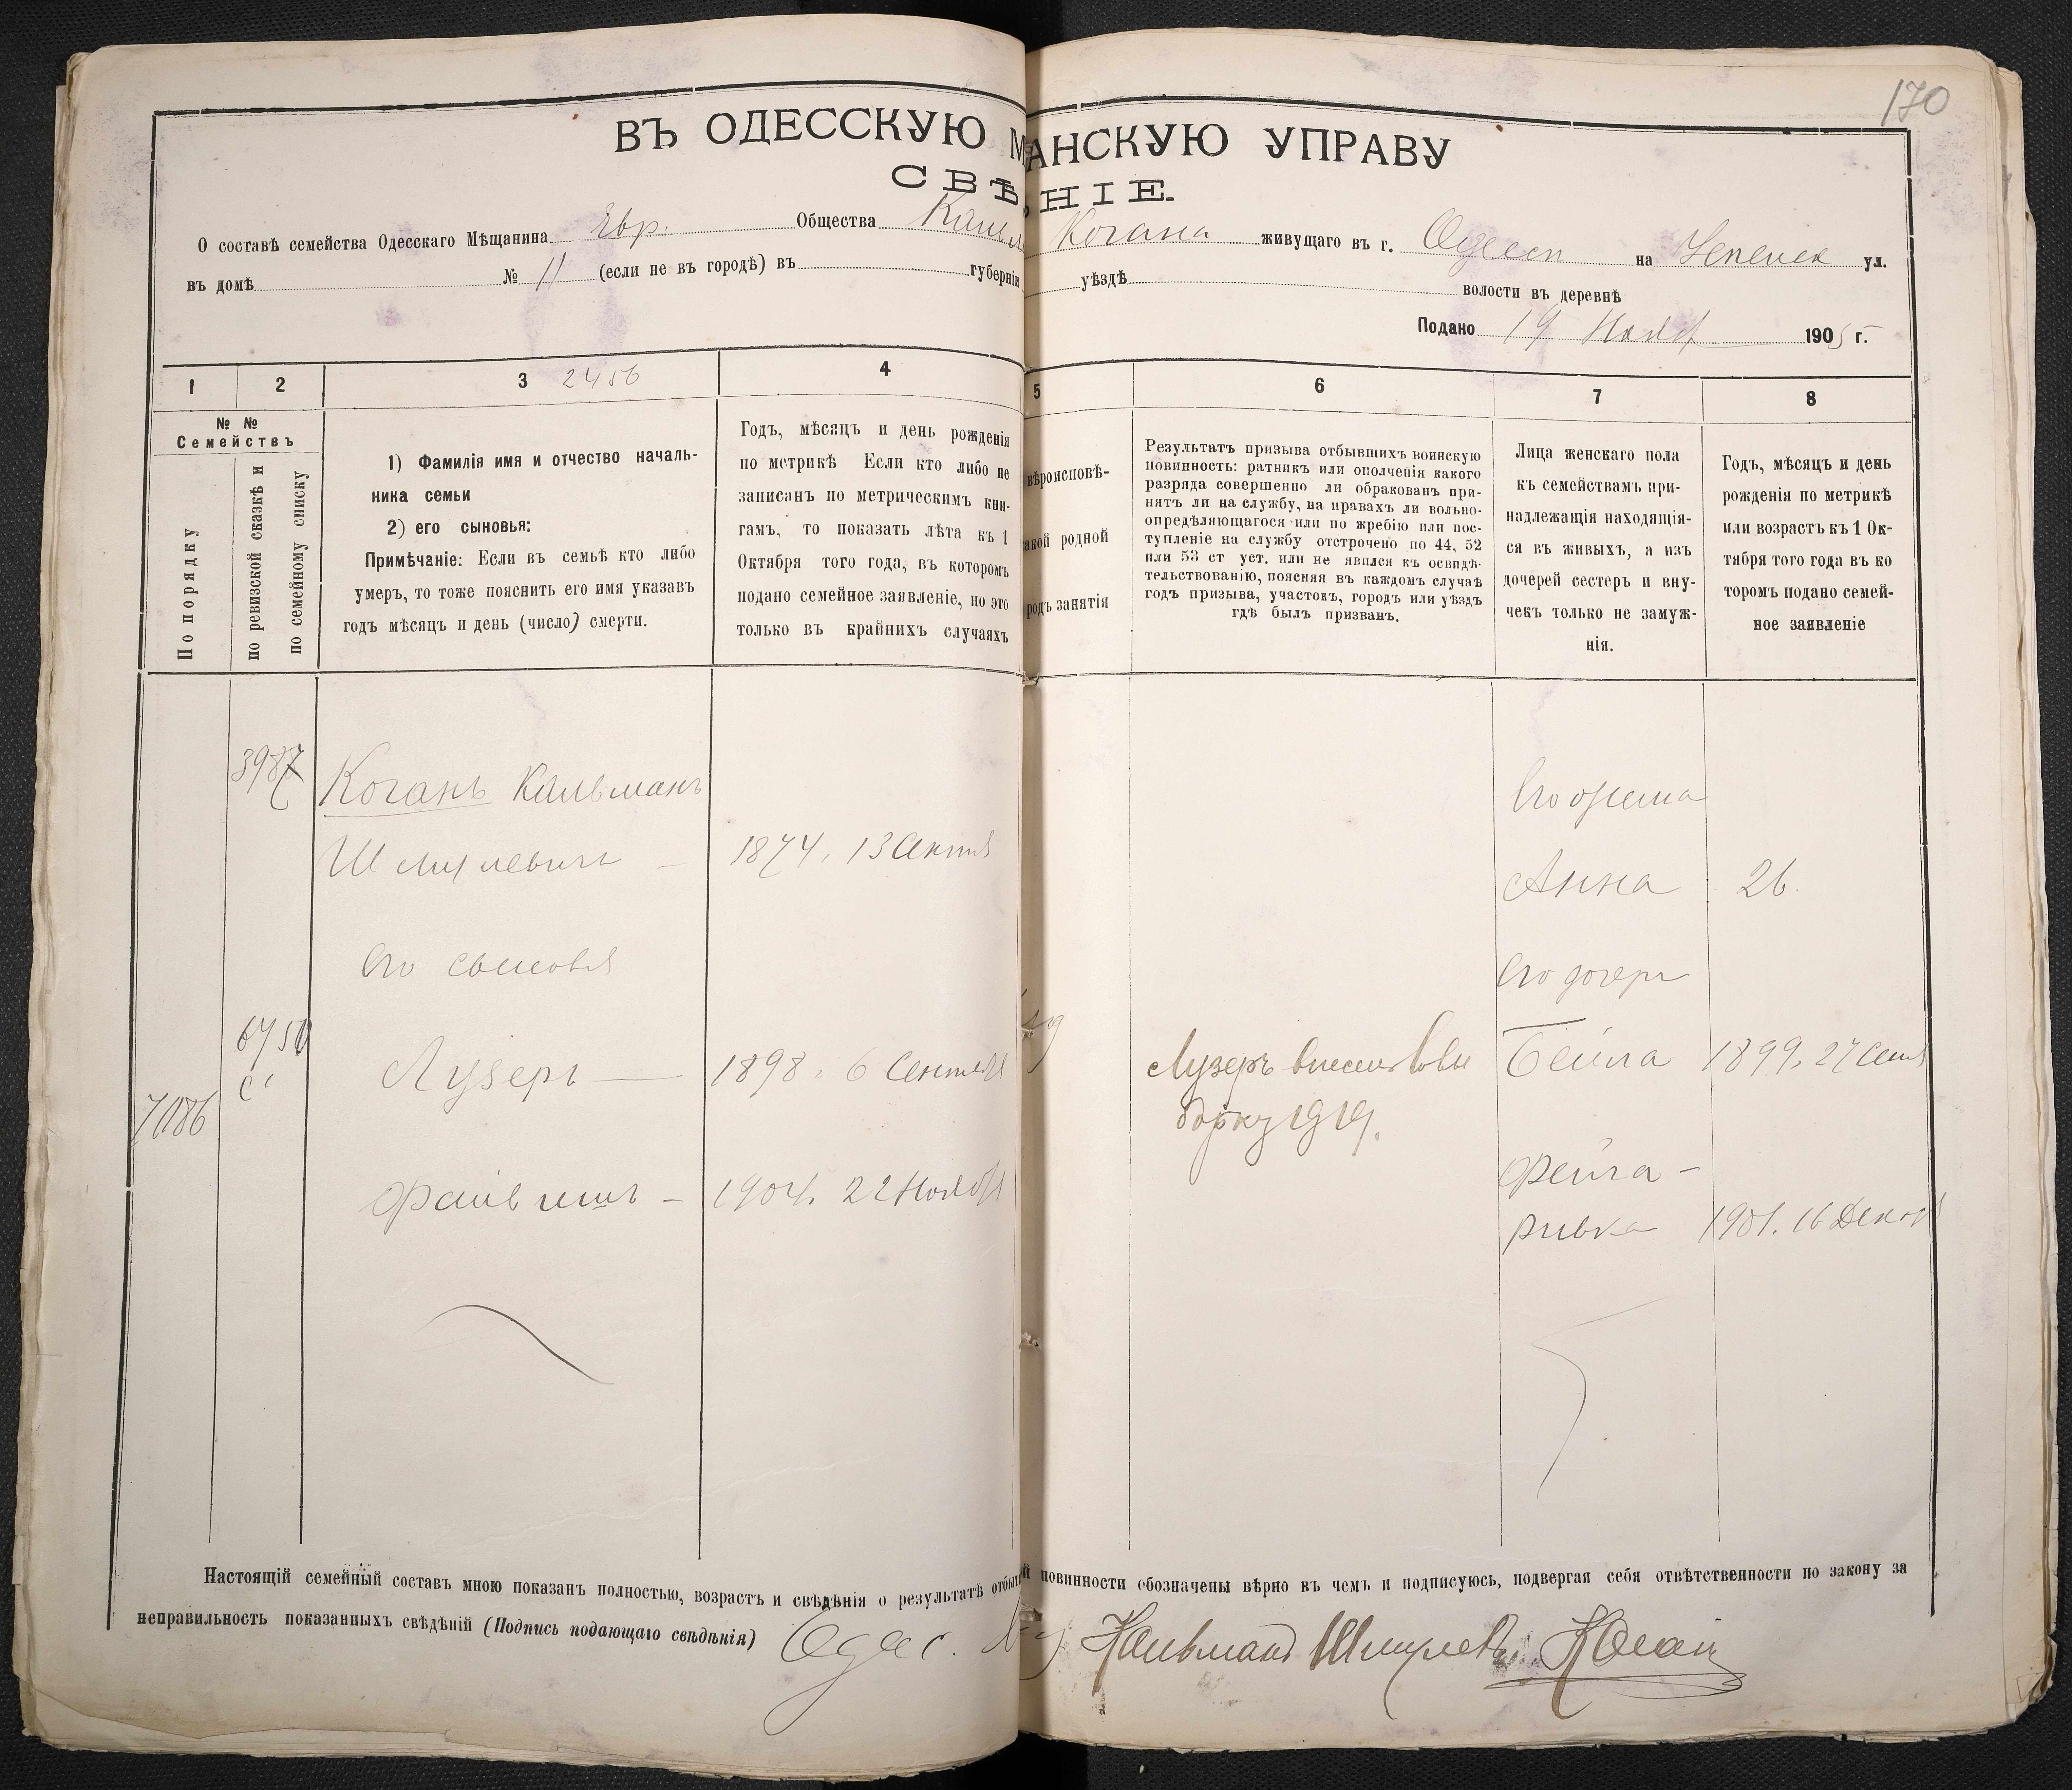 170
ВЪ ОДЕССКУЮ М АНСКУЮ УПРАВУ
СВѢ НІЕ.
О составѣ семейства Одесскаго Мѣщанина Евр. Общества Кальм Когана живущаго въ г. Одессѣ на Успенск ул.
въ домѣ № 11 (если не въ городѣ) въ губерніи уѣздѣ волости въ деревнѣ
Подано 19 Нояб 1905 г.
1 2 3 2456 4 5 6 7 8
№ №
Семействъ
По порядку
по ревизской сказкѣ и
по семейному списку
1) Фамилія имя и отчество началь-
ника семьи
2) его сыновья:
Примѣчаніе: Если въ семьѣ кто либо
умеръ, то тоже пояснить его имя указавъ
годъ мѣсяцъ и день (число) смерти.
Годъ, мѣсяцъ и день рожденія
по метрикѣ Если кто либо не
записанъ по метрическимъ кни-
гамъ, то показать лѣта къ 1
Октября того года, въ которомъ
подано семейное заявленіе, но это
только въ крайнихъ случаяхъ
вѣроисповѣ-
акой родной
родъ занятія
Результатъ призыва отбывшихъ воинскую
повинность: ратникъ или ополченія какого
разряда совершенно ли обракованъ при-
нятъ ли на службу, на правахъ ли вольно-
опредѣляющагося или по жребію или пос-
тупленіе на службу отстрочено по 44, 52
или 53 ст уст. или не явился къ освидѣ-
тельствованію, поясняя въ каждомъ случаѣ
годъ призыва, участокъ, городъ или уѣздъ
гдѣ былъ призванъ.
Лица женскаго пола
къ семействамъ при-
надлежащія находящія-
ся въ живыхъ, а изъ
дочерей сестеръ и вну-
чекъ только не замуж-
нія.
Годъ, мѣсяцъ и день
рожденія по метрикѣ
или возрастъ къ 1 Ок-
тября того года въ ко
торомъ подано семей-
ное заявленіе
3987
Коганъ Кальманъ
Его жена
Шмулевичъ — 1874. 13 Сентя
Анна 26.
Его сыновья
Его дочери
6750
Лузеръ — 1898. 6 Сентября
Лузеръ внесенъ
Бейла 1899. 27 Сент
7086
1919.
Файвишъ — 1904. 22 Ноября
Фейга —
Ривка 1901. 16 Декабр
Настоящій семейный составъ мною показанъ полностью, возрастъ и свѣдѣнія о результатѣ отбыт й повинности обозначены вѣрно въ чемъ и подписуюсь, подвергая себя отвѣтственности по закону за
неправильность показанныхъ свѣдѣній (Подпись подающаго свѣдѣнія) Одес. Кальманъ Шмулев. Коган